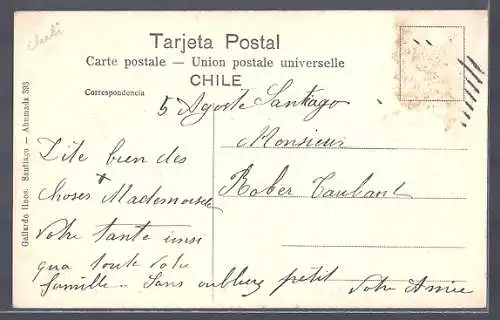 Chili
Tarjeta Postal
Carte postale — Union postale universelle
CHILE
Correspondencia
Gallardo Hnos. Santiago — Ahumada 393
5 Agosto Santiago
Monsieur
Rober Taubant
Dite bien des
choses Mademoiselle
Votre tante
toute votre
famille. Sans oublier petit
Votre Amie